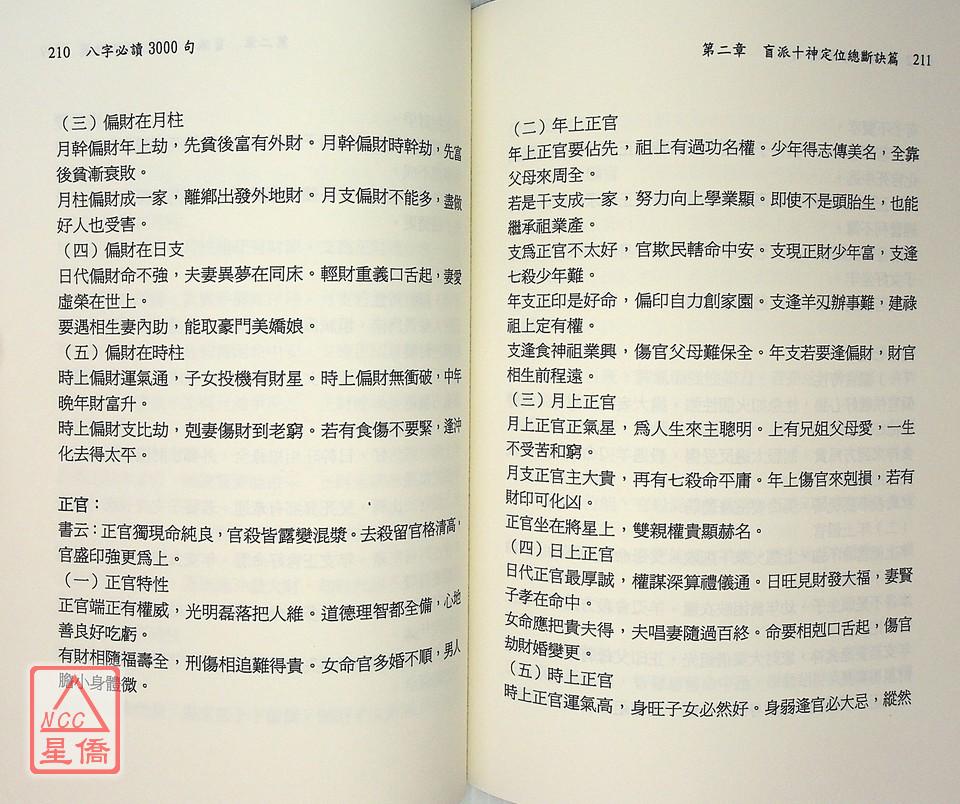 210 八字必讀3000句
（三）偏財在月柱
月幹偏財年上劫，先貧後富有外財。月幹偏財時幹劫，先富
後貧漸衰敗。
月柱偏財成一家，離鄉出發外地財。月支偏財不能多，盡做
好人也受害。
（四）偏財在日支
日代偏財命不強，夫妻異夢在同床。輕財重義口舌起，妻愛
虛榮在世上。
要遇相生妻內助，能取豪門美嬌娘。
（五）偏財在時柱
時上偏財運氣通，子女投機有財星。時上偏財無衝破，中年
晚年財富升。
時上偏財支比劫，剋妻傷財到老窮。若有食傷不要緊，逢沖
化去得太平。
正官：
書云：正官獨現命純良，官殺皆露變混漿。去殺留官格清高，
官盛印強更爲上。
（一）正官特性
正官端正有權威，光明磊落把人維。道德理智都全備，心地
善良好吃虧。
有財相隨福壽全，刑傷相追難得貴。女命官多婚不順，男人
膽小身體微。
NCC
星僑
第二章 盲派十神定位總斷訣篇 211
（二）年上正官
年上正官要佔先，祖上有過功名權。少年得志傳美名，全靠
父母來周全。
若是干支成一家，努力向上學業顯。即使不是頭胎生，也能
繼承祖業產。
支爲正官不太好，官欺民轄命中安。支現正財少年富，支逢
七殺少年難。
年支正印是好命，偏印自力創家園。支逢羊刃辦事難，建祿
祖上定有權。
支逢食神祖業興，傷官父母難保全。年支若要逢偏財，財官
相生前程遠。
（三）月上正官
月上正官正氣星，爲人生來主聰明。上有兄姐父母愛，一生
不受苦和窮。
月支正官主大貴，再有七殺命平庸。年上傷官來剋損，若有
財印可化凶。
正官坐在將星上，雙親權貴顯赫名。
（四）日上正官
日代正官最厚誠，權謀深算禮儀通。日旺見財發大福，妻賢
子孝在命中。
女命應把貴夫得，夫唱妻隨過百終。命要相剋口舌起，傷官
劫財婚變更。
（五）時上正官
時上正官運氣高，身旺子女必然好。身弱逢官必大忌，縱然